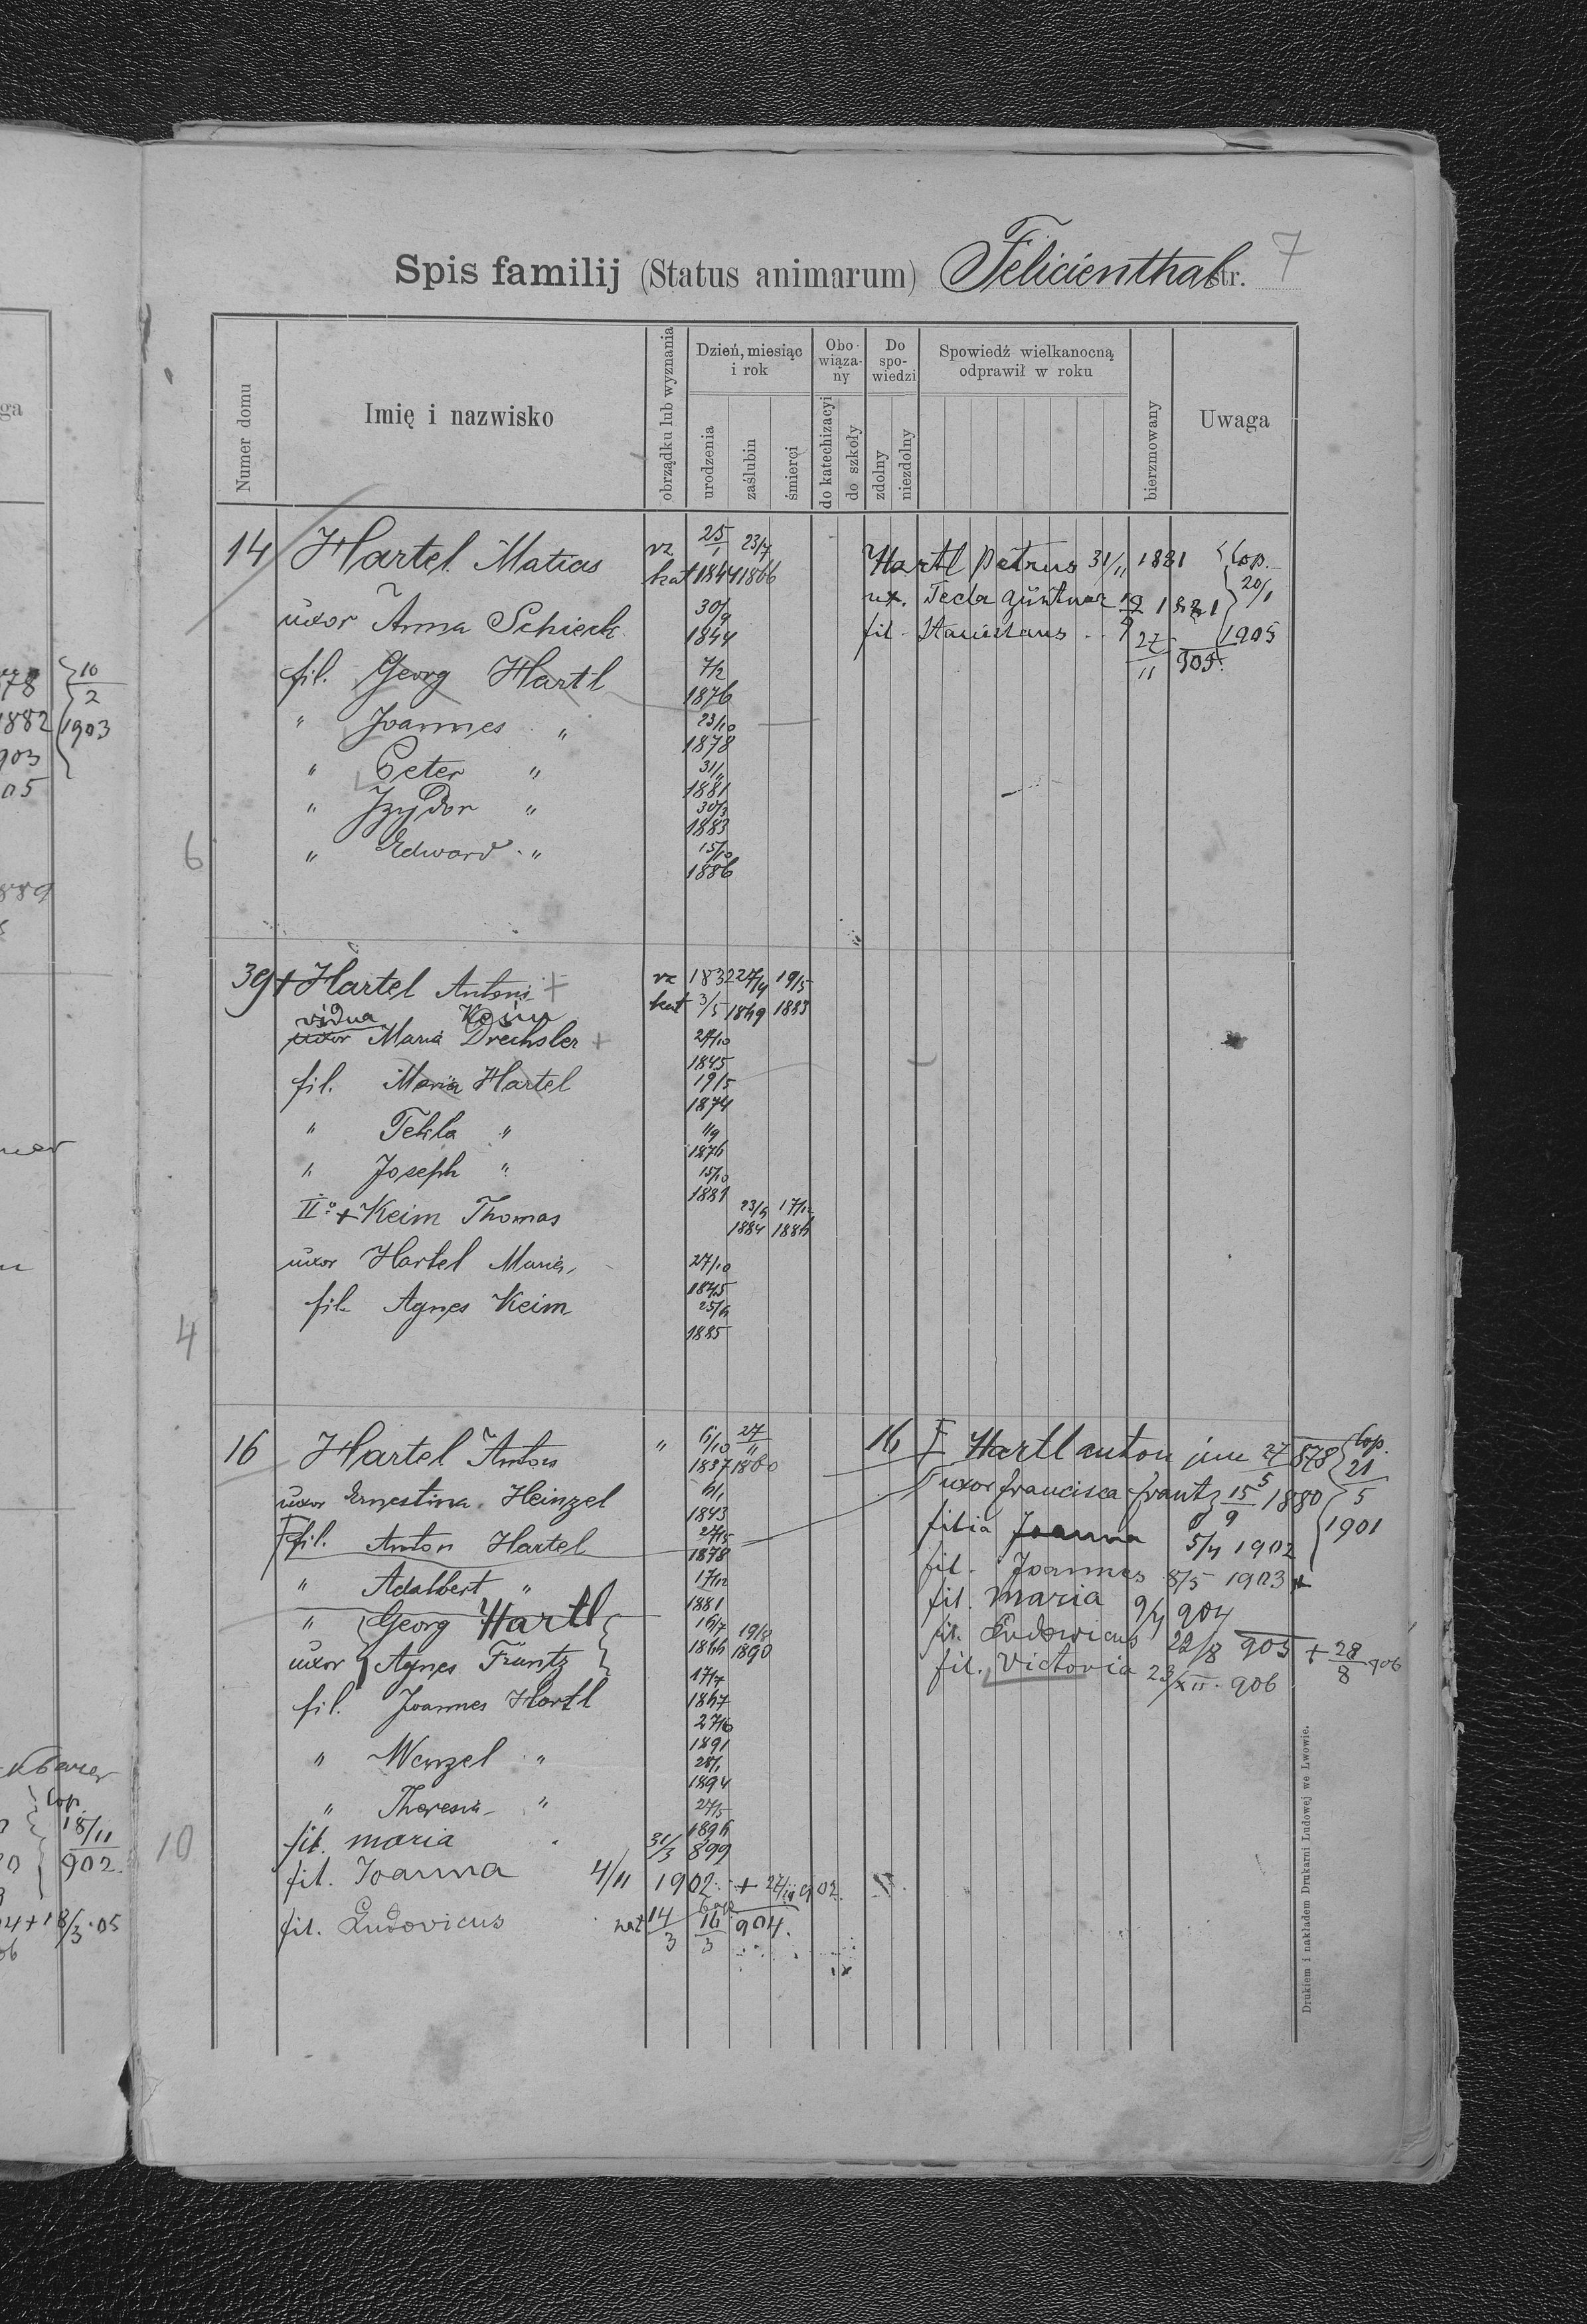 Spis familij (Status animarum) Felicienthal str. 7
Numer domu
Imię i nazwisko
obrządku lub wyznania
Dzień, miesiąc i rok
urodzenia
zaślubin
śmierci
Obowiązany
do katechizacyi
do szkoły
Do spowiedzi
zdolny
niezdolny
Spowiedź wielkanocną odprawił w roku
bierzmowany
Uwaga
14 Hartel Matias rz kat 25/1 1844 23/7 1866
uxor Anna Schieck 30/9 1844
fil. Georg Hartl 7/2 1876
" Joannes " 23/10 1878
" Peter " 31/11 1881
" Izydor " 30/3 1883
" Edward " 15/10 1886
Hartl Petrus 31/11 1881 cop.
ux. Tecla Güntner 1881 20/1
fil. Stanislaus 27/11 905. 1905
6
39 + Hartel Antoni + rz kat 1832 3/5 27/4 1869 19/5 1883
vidua Keim
uxor Maria Drechsler + 27/10 1845
fil. Maria Hartel 19/5 1874
" Tekla " 1/9 1876
" Joseph " 15/10 1881
II° + Keim Thomas 1884 1886
uxor Hartel Maria 27/10 1845
fil. Agnes Keim 1885
4
16 Hartel Anton " 6/10 1837 27/11 1860
uxor Ernestina Heinzel 1843
fil. Anton Hartel 27/5 1878
" Adalbert " 17/12 1881
" Georg Hartl 16/7 1866 1890
uxor Agnes Frantz 17/7 1867
fil. Joannes Hartl 1891
" Wenzel " 28/1 1894
" Theresia " 27/5 1896
fil. Maria 31/3 899
fil. Joanna 4/11 1902 + 902.
fil. Ludovicus nat 14/3 bapt 16/3 904.
10
16 I Hartl Anton jun 27/5 878 cop.
uxor Francisca Frantz 15/9 1880 21/5
filia Joanna 5/4 1902 1901
fil. Joannes 8/5 1903 +
fil. Maria 9/4 904
fil. Ludovicus 22/8 905 + 28/8 906
fil. Victoria 23/XII. 906
Drukiem i nakładem Drukarni Ludowej we Lwowie.
ga
10/2
1882 1903
903
05
889
cop
18/11
902.
+ 18/3 05